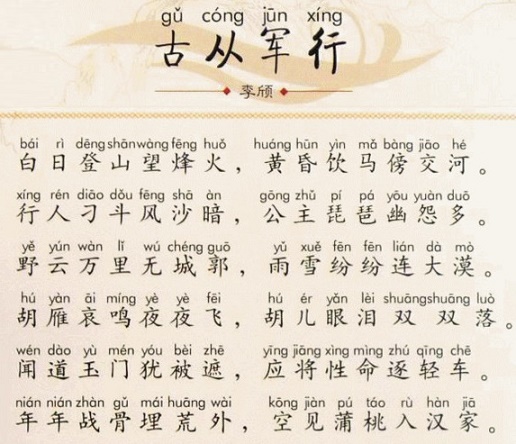 gǔ cóng jūn xíng
古从军行
李颀
bái rì dēng shān wàng fēng huǒ, huáng hūn yìn mǎ bàng jiāo hé
白日登山望烽火，黄昏饮马傍交河。
xíng rén diāo dǒu fēng shā àn gōng zhǔ pí pá yōu yuàn duō
行人刁斗风沙暗，公主琵琶幽怨多。
yě yún wàn lǐ wú chéng guō yǔ xuě fēn fēn lián dà mò
野云万里无城郭，雨雪纷纷连大漠。
hú yàn āi míng yè yè fēi hú ér yǎn lèi shuāng shuāng luò
胡雁哀鸣夜夜飞，胡儿眼泪双双落。
wén dào yù mén yóu bèi zhē yīng jiāng xìng mìng zhú qīng chē
闻道玉门犹被遮，应将性命逐轻车。
nián nián zhàn gǔ mái huāng wài kōng jiàn pú táo rù hàn jiā
年年战骨埋荒外，空见蒲桃入汉家。